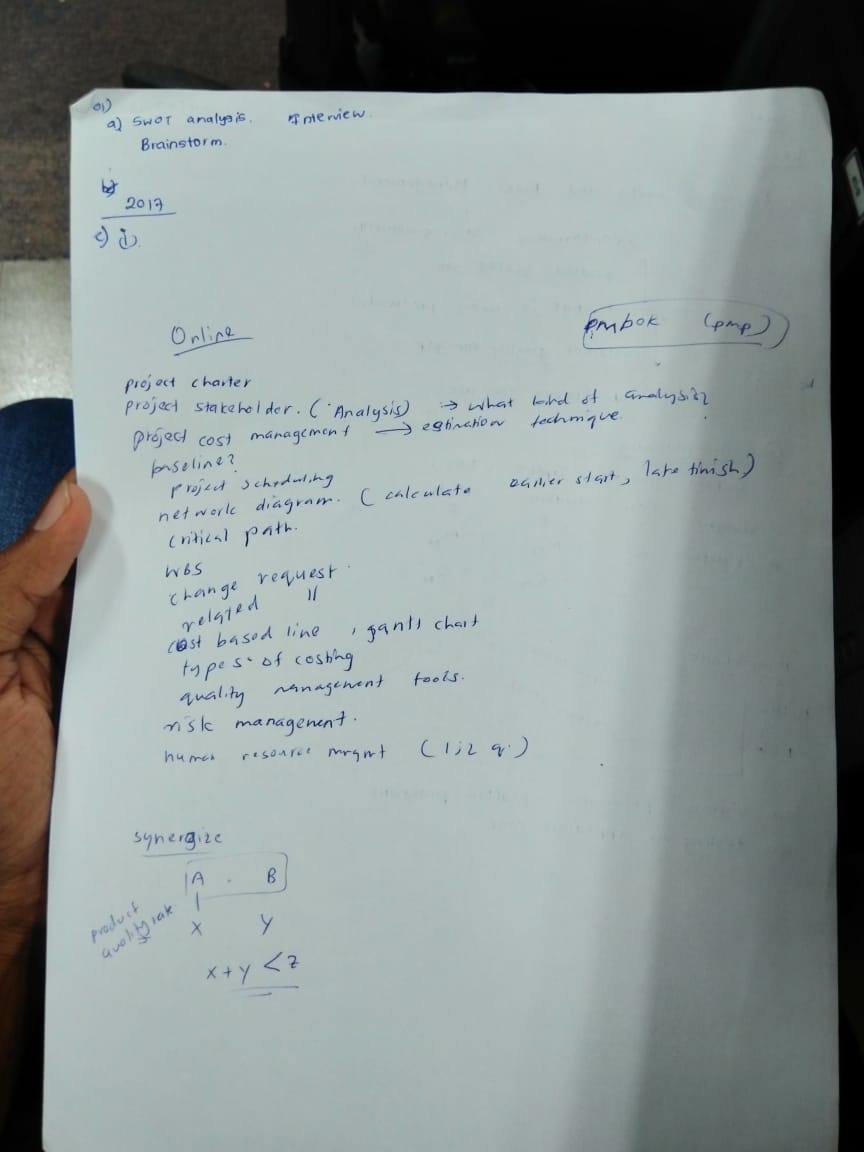 01)
a) SWOT analysis. Interview.
Brainstorm.
b)
2017
c) i).
Online
pmbok (pmp)
project charter
project stakeholder. (Analysis) → what kind of analysis?
project cost management → estination technique.
baseline?
project scheduling
network diagram. (calculate earlier start, late finish)
critical path.
WBS
change request.
related "
cost based line, gantt chart
types of costing
quality management tools.
risk management.
human resource mrgmt (1,2 q.)
synergize
A . B
product
quality rate
X Y
x+y <z